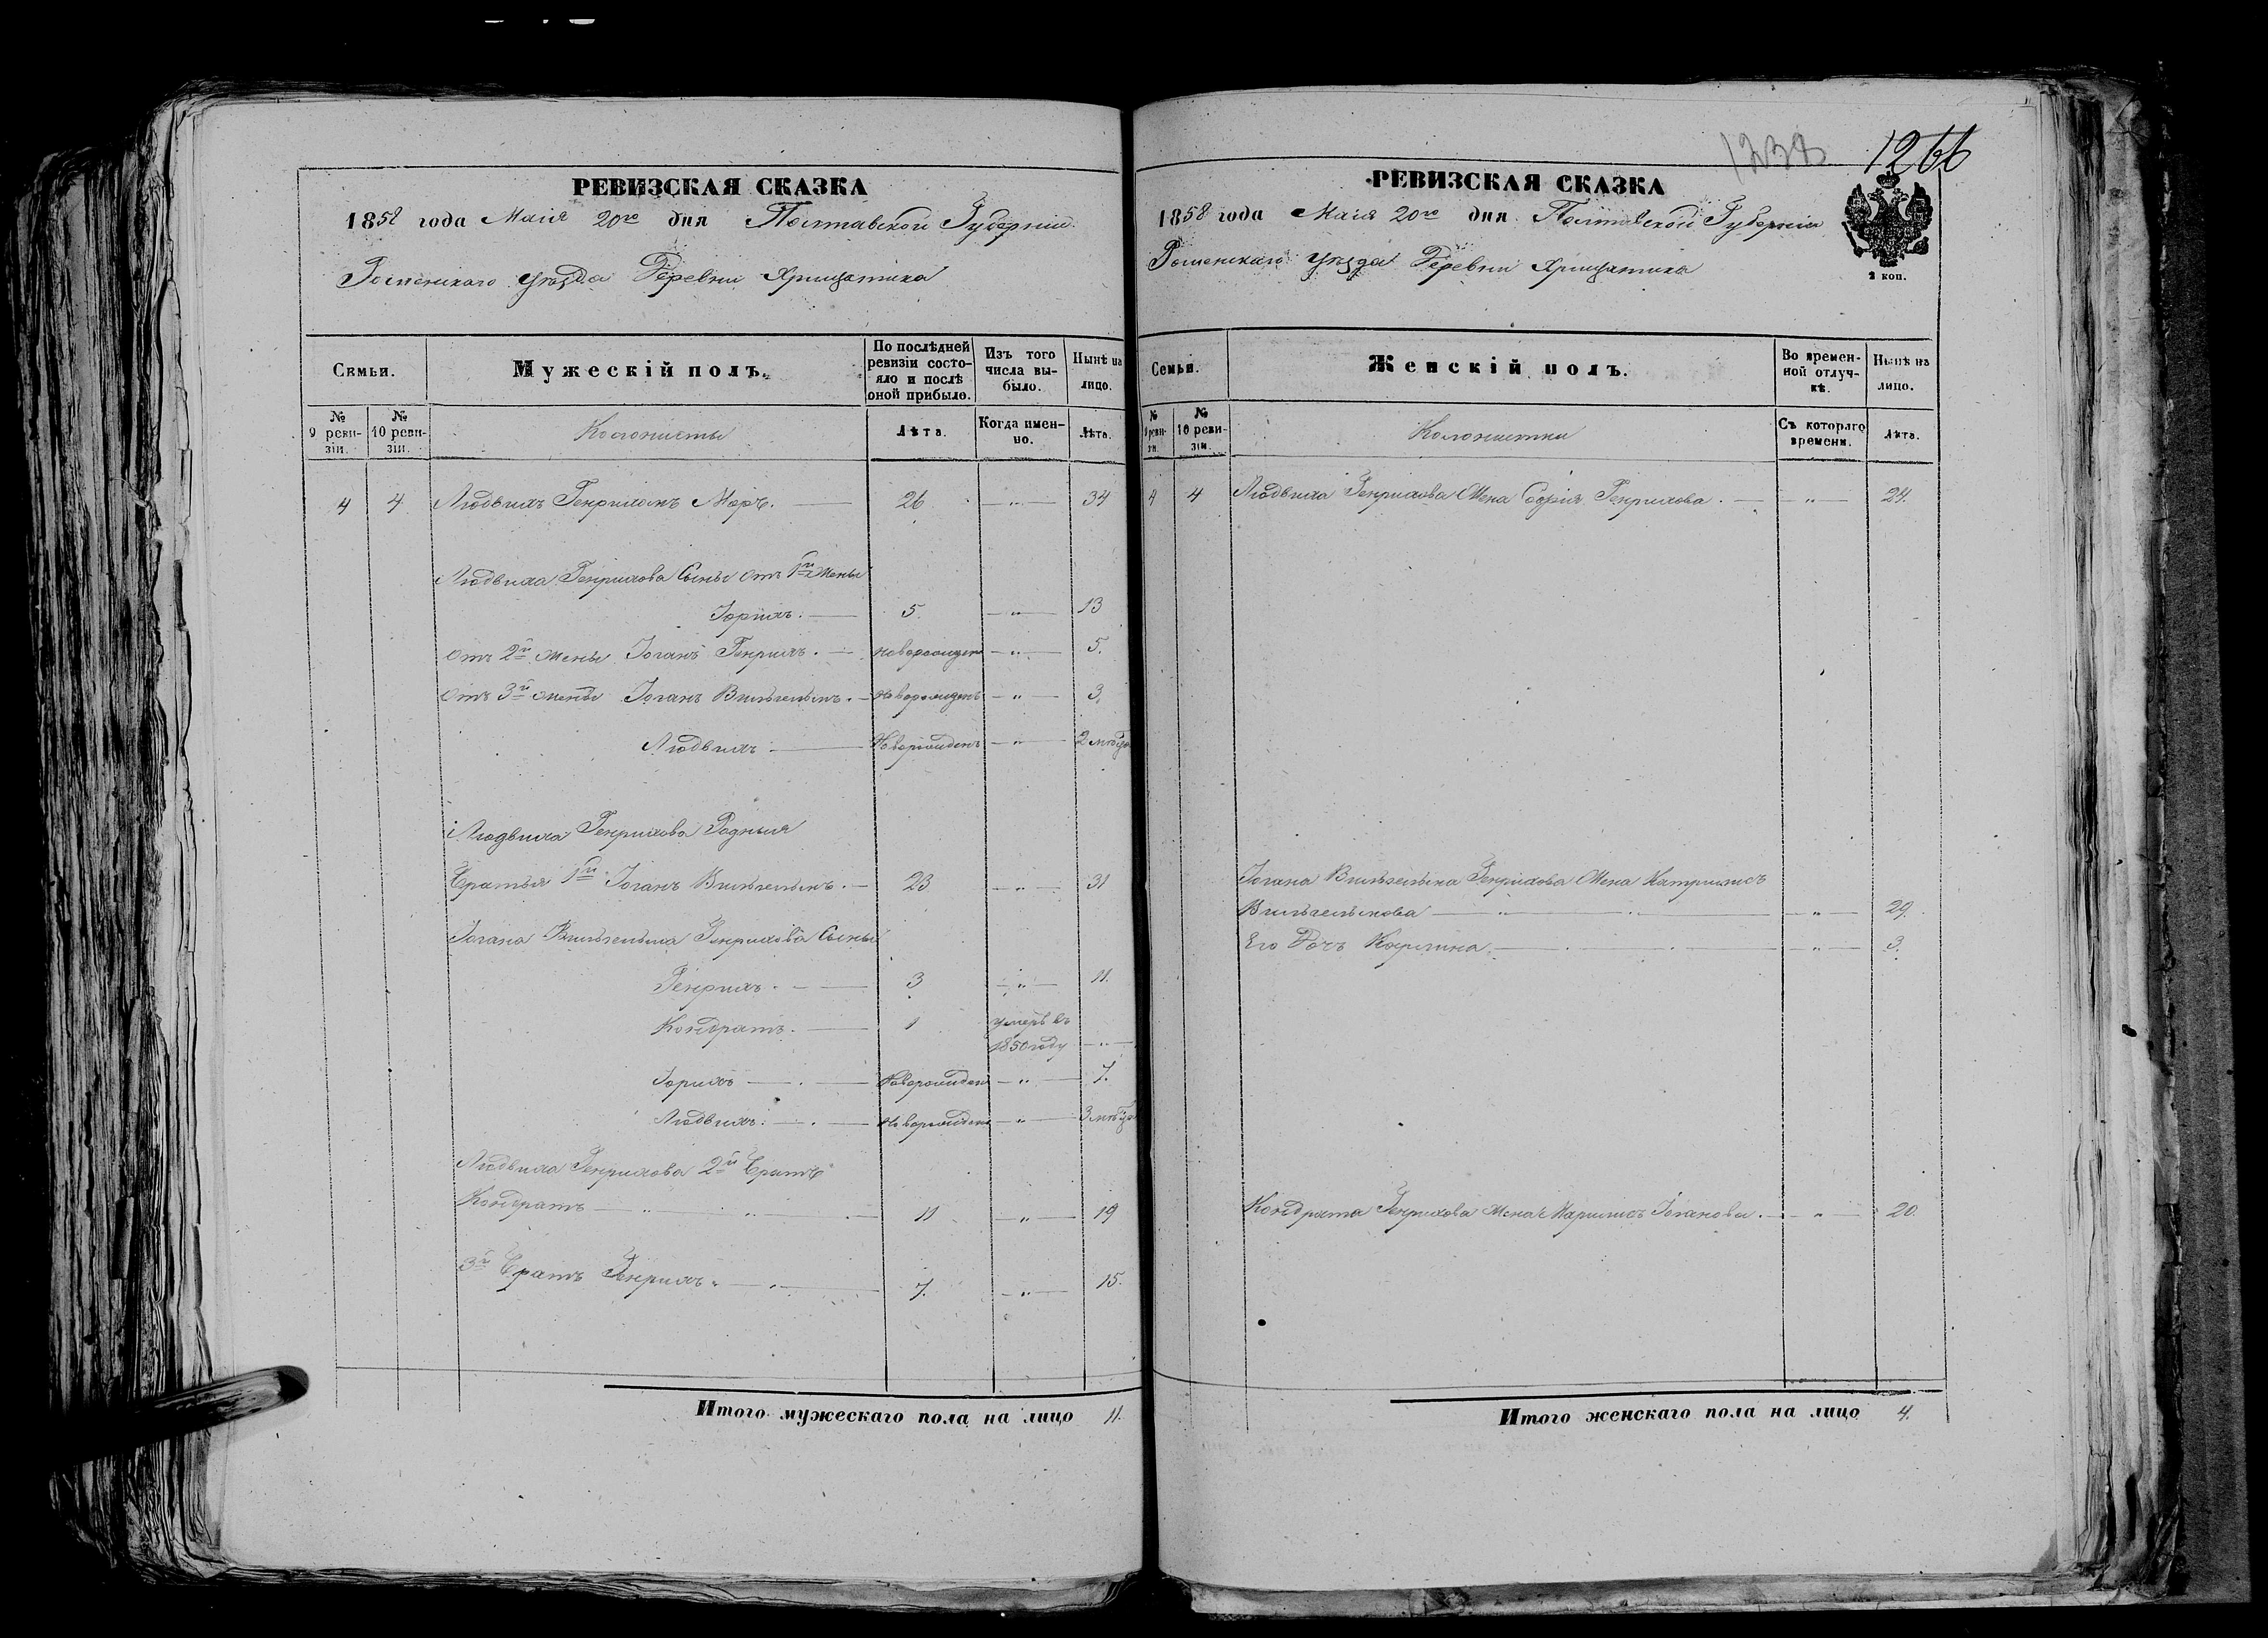 РЕВИЗСКАЯ СКАЗКА
1858 года Маія 20го дня Полтавской Губерніи
Роменскаго уѣзда Деревни Хрищатика
Семьи.
Мужескій полъ.
По послѣдней ревизіи состояло и послѣ оной прибыло.
Изъ того числа выбыло.
Нынѣ на лицо.
№ 9 ревизіи.
№ 10 ревизіи.
Колонисты
Лѣта.
Когда именно.
Лѣта.
4 4 Людвихъ Генриховъ 26 — " — 34
Людвиха Генрихова Сыны отъ 1й Жены
Іорихъ. — 5. — " — 13
отъ 2й жены Іоганъ Генрихъ. — новорожденъ — " — 5.
отъ 3й жены Іоганъ Вильгельмъ. — новорожденъ — " — 3.
Людвихъ — Новорожденъ — " — 2 мѣсяц
Людвиха Генрихова Родныя
Братья 1й Іоганъ Вильгельмъ. — 23 — " — 31
Іогана Вильгельма Генрихова Сыны
Генрихъ. — 3 — " — 11.
Кондратъ. — 1 умеръ въ
1850 году — " —
Іорихъ — Новорожден — " — 7.
Людвихъ. — новорожден — " — 3 мѣсяц
Людвиха Генрихова 2й Братъ
Кондратъ — " — " — 11 — " — 19
3й Братъ Генрихъ. — " — 7. — " — 15.
Итого мужескаго пола на лицо 11.
1266
РЕВИЗСКАЯ СКАЗКА
1858 года Маія 20го дня Полтавской Губерніи
Роменскаго уѣзда Деревни Хрищатика
2 коп.
Семьи.
Женскій полъ.
Во временной отлучкѣ.
Нынѣ на лицо.
№ 9 ревизіи.
№ 10 ревизіи.
Колонистки
Съ котораго времени.
Лѣта.
4 4 Людвиха Генрихова Жена Софія Генрихова. — " — 24.
Іогана Вильгельма Генрихова Жена
Вильгельмова — " — " — " — 29.
Его Дочь Карлина. — " — 3.
Кондрата Генрихова жена Марилисъ Іоганова. — " — 20.
Итого женскаго пола на лицо 4.